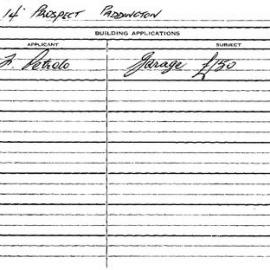 14 PROSPECT PADDINGTON
BUILDING APPLICATIONS
APPLICANT SUBJECT
Garage £150